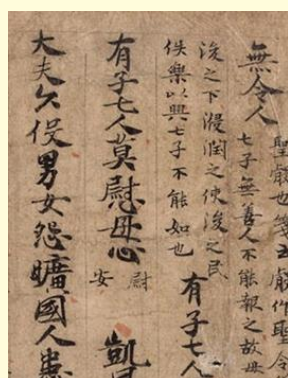 無令人
聖叡也箋云叡作聖令
七子無善人不能報之故母
浚之下浸潤之使浚之民
佚樂以興七子不能如也
有子七人
有子七人莫慰母心
尉
安
凱
大夫久役男女怨曠國人患